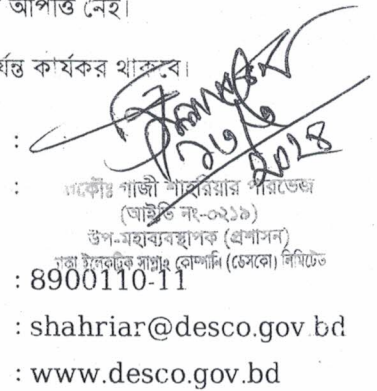 আপত্তি নেই।
র্যন্ত কার্যকর থাকবে।
:
২০২৪
: প্রকৌঃ গাজী শাহরিয়ার পারভেজ
(আইডি নং-০২১৯)
উপ-মহাব্যবস্থাপক (প্রশাসন)
ঢাকা ইলেকট্রিক সাপ্লাই কোম্পানি (ডেসকো) লিমিটেড
: 8900110-11
: shahriar@desco.gov.bd
: www.desco.gov.bd